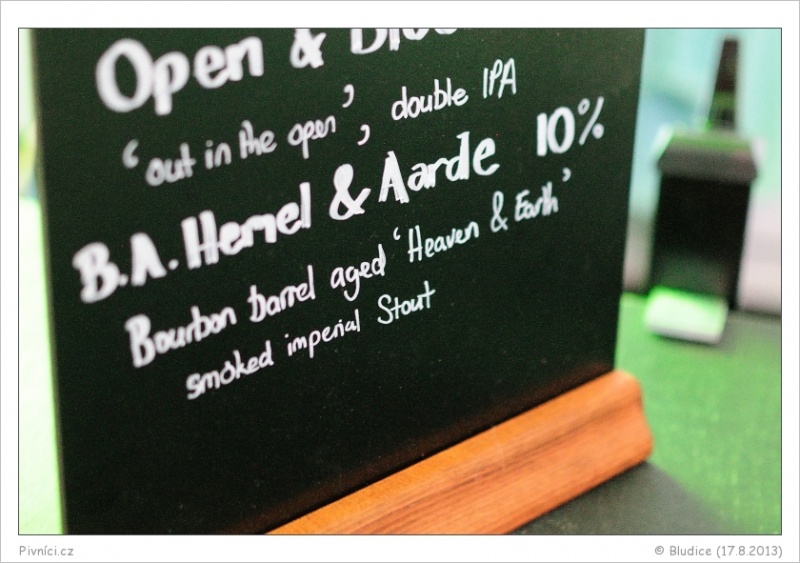 Open &
'out in the open', double IPA
B.A. Hemel & Aarde 10%
Bourbon barrel aged 'Heaven & Earth'
smoked imperial Stout
Pivníci.cz
© Bludice (17.8.2013)